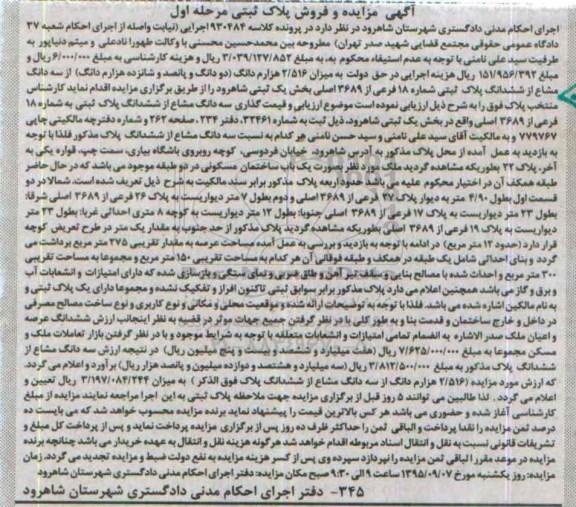 آگهی مزایده و فروش پلاک ثبتی مرحله اول
اجرای احکام مدنی دادگستری شهرستان شاهرود در نظر دارد در پرونده کلاسه ۹۳۰۴۸۴ اجرایی (نیابت واصله از اجرای احکام شعبه ۲۷
دادگاه عمومی حقوقی مجتمع قضایی شهید صدر تهران) مطروحه بین محمدحسین محسنی با وکالت طهورا نادعلی و میثم دنیاپور به
طرفیت سید علی نامنی با توجه به عدم استیفاء محکوم به، به مبلغ ۳/۰۳۹/۱۲۷/۸۵۲ ریال و هزینه کارشناسی به مبلغ ۶/۰۰۰/۰۰۰ ریال و
مبلغ ۱۵۱/۹۵۶/۳۹۲ ریال هزینه اجرایی در حق دولت به میزان ۲/۵۱۶ هزارم دانگ (دو دانگ و پانصد و شانزده هزارم دانگ) از سه دانگ
مشاع از ششدانگ پلاک ثبتی شماره ۱۸ فرعی از ۳۶۸۹ اصلی بخش یک ثبتی شاهرود را از طریق برگزاری مزایده اقدام نماید کارشناس
منتخب پلاک فوق را به شرح ذیل ارزیابی نموده است موضوع ارزیابی و قیمت گذاری سه دانگ مشاع از ششدانگ پلاک ثبتی به شماره ۱۸
فرعی از ۳۶۸۹ اصلی واقع در بخش یک ثبتی شاهرود، ذیل ثبت به شماره ۳۳۴۶۱، دفتر ۲۳۴، صفحه ۲۶۲ و شماره دفترچه مالکیتی چاپی
۷۷۹۷۶۷ و به مالکیت آقای سید علی نامنی و سید حسن نامنی هر کدام به نسبت سه دانگ مشاع از ششدانگ پلاک مذکور فلذا با توجه
به بازدید به عمل آمده از محل پلاک مذکور به آدرس شاهرود، خیابان فردوسی، کوچه روبروی باشگاه بیاری، سمت چپ، قواره یکی به
آخر، پلاک ۲۲ بطوریکه مشاهده گردید ملک مورد نظر بصورت یک باب ساختمان مسکونی در دو طبقه موجود می باشد که در حال حاضر
طبقه همکف آن در اختیار محکوم علیه می باشد حدود اربعه پلاک مذکور برابر سند مالکیت به شرح ذیل تعریف شده است. شمالا در دو
قسمت اول بطول ۴/۹۰ متر به دیوار پلاک ۲۷ فرعی از ۳۶۸۹ اصلی و دوم بطول ۷ متر دیواریست به پلاک ۲۶ فرعی از ۳۶۸۹ اصلی شرقا:
بطول ۲۳ متر دیواریست به پلاک ۱۷ فرعی از ۳۶۸۹ اصلی جنوبا: بطول ۱۲ متر دیواریست به کوچه ۸ متری احداثی غربا: بطول ۲۳ متر
دیواریست به پلاک ۱۹ فرعی از ۳۶۸۹ اصلی بطوریکه مشاهده گردید پلاک مذکور از حد جنوب به مقدار یک متر در طرح تعریض کوچه
قرار دارد (حدود ۱۲ متر مربع) در ادامه با توجه به بازدید و بررسی به عمل آمده مساحت عرصه به مقدار تقریبی ۲۷۵ متر مربع برداشت می
گردد و بنای احداثی شامل یک طبقه در همکف و طبقه فوقانی آن هر کدام به مساحت تقریبی ۱۵۰ متر مربع و مجموعا به مساحت تقریبی
۳۰۰ متر مربع و احداث شده با مصالح بنایی و سقف تیرآهن و طاق ضربی و نمای سنگی و بازسازی شده که دارای امتیازات و انشعابات آب
و برق و گاز می باشد همچنین اعلام می دارد پلاک مذکور برابر سوابق ثبتی تاکنون افراز و تفکیک نشده و مجموعا دارای یک پلاک ثبتی و
به نام مالکین اشاره شده می باشد. فلذا با توجه به توضیحات ارائه شده و موقعیت محلی و مکانی و نوع کاربری و نوع ساخت مصالح مصرفی
در داخل و خارج ساختمان و قدمت بنا و به طور کلی با در نظر گرفتن جمیع جهات موثر در قضیه به نظر اینجانب ارزش ششدانگ عرصه
و اعیان ملک صدر الاشاره به انضمام تمامی امتیازات و انشعابات متعلقه با توجه به شرایط موجود و با در نظر گرفتن بازار تعاملات ملک و
مسکن مجموعا به مبلغ ۷/۶۲۵/۰۰۰/۰۰۰ ریال (هفت میلیارد و ششصد و بیست و پنج میلیون ریال) در نتیجه ارزش سه دانگ مشاع از
ششدانگ پلاک مذکور به مبلغ ۳/۸۱۲/۵۰۰/۰۰۰ ریال (سه میلیارد و هشتصد و دوازده میلیون و پانصد هزار ریال) برآورد و اعلام می گردد.
که ارزش مورد مزایده (۲/۵۱۶ هزارم دانگ از سه دانگ مشاع از ششدانگ پلاک فوق الذکر) به میزان ۳/۱۹۷/۰۸۴/۲۴۴ ریال تعیین و
اعلام می گردد. لذا طالبین می توانند ۵ روز قبل از برگزاری مزایده جهت ملاحظه پلاک ثبتی به این اجرا مراجعه نمایند مزایده از مبلغ
کارشناسی آغاز شده و حضوری می باشد هر کس بالاترین قیمت را پیشنهاد نماید برنده مزایده محسوب خواهد شد که می بایست ده
درصد ثمن مزایده را نقدا پرداخت و الباقی ثمن را حداکثر ظرف ده روز پس از برگزاری مزایده پرداخت نماید و پس از پرداخت کل مبلغ و
تشریفات قانونی نسبت به نقل و انتقال اسناد مربوطه اقدام خواهد شد هرگونه هزینه نقل و انتقال به عهده خریدار می باشد چنانچه برنده
مزایده در موعد مقرر الباقی ثمن مزایده را نپردازد سپرده وی پس از کسر هزینه مزایده به نفع دولت ضبط و مزایده تجدید می گردد. زمان
مزایده: روز یکشنبه مورخ ۱۳۹۵/۰۹/۰۷ ساعت ۹ الی ۹:۳۰ صبح مکان مزایده: دفتر اجرای احکام مدنی دادگستری شهرستان شاهرود
۳۴۵- دفتر اجرای احکام مدنی دادگستری شهرستان شاهرود